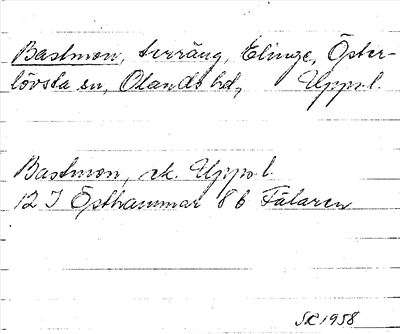 Bastmon, terräng, Elinge, Öster-
lövsta sn, Olands hd, Uppl.
Bastmon, ek. Uppl.
12 I Östhammar 8 b Fälaren
SR 1958